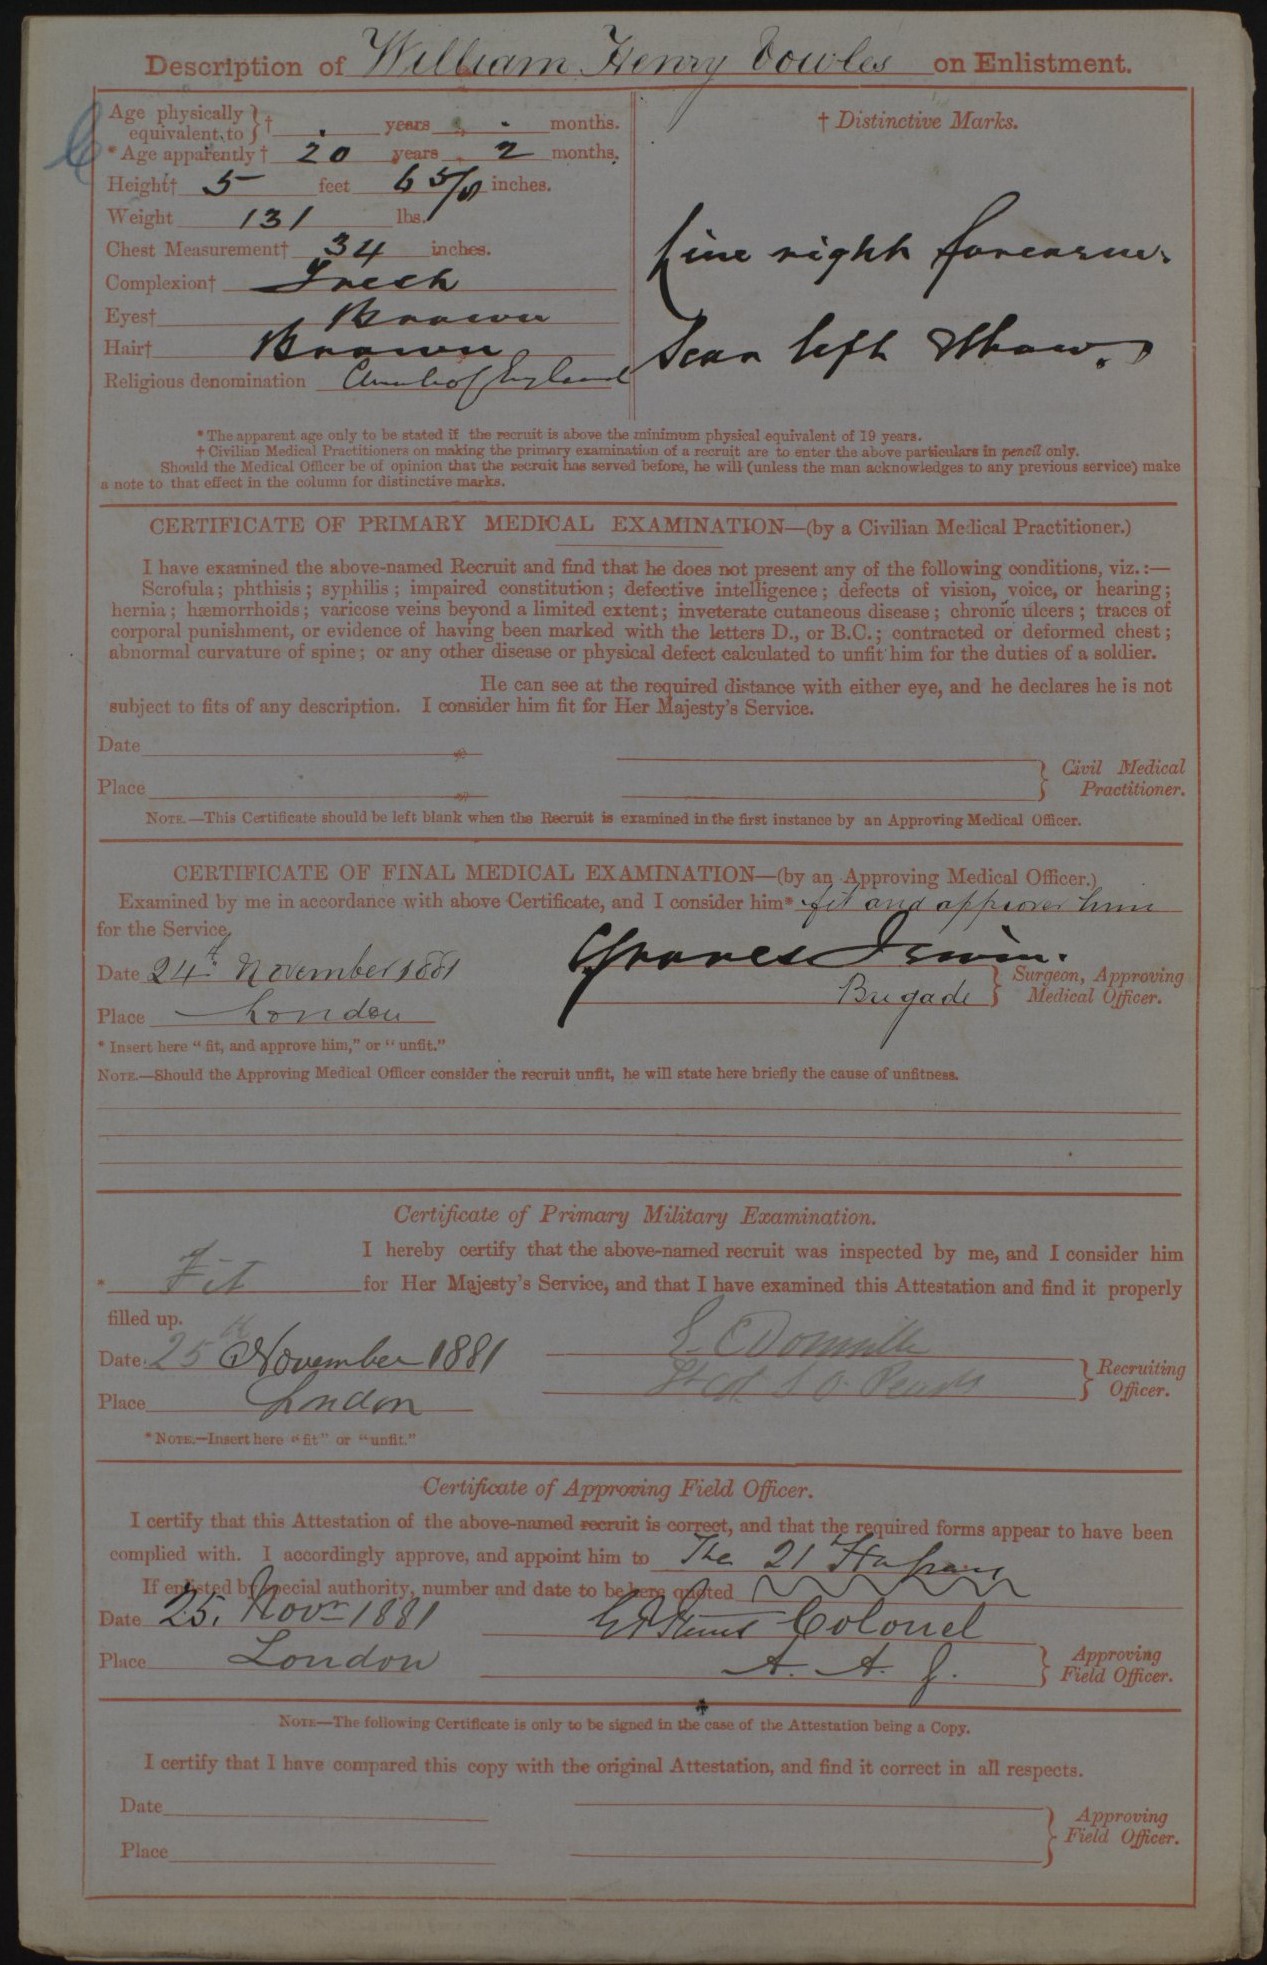 Description of William Henry Vowles on Enlistment.
Age physically equivalent to } † . years . months.
* Age apparently † 20 years 2 months.
Height† 5 feet 6 5/8 inches.
Weight 131 lbs.
Chest Measurement† 34 inches.
Complexion† Fresh
Eyes† Brown
Hair† Brown
Religious denomination Church of England
† Distinctive Marks.
right forearm.
Scar left
* The apparent age only to be stated if the recruit is above the minimum physical equivalent of 19 years.
† Civilian Medical Practitioners on making the primary examination of a recruit are to enter the above particulars in pencil only.
Should the Medical Officer be of opinion that the recruit has served before, he will (unless the man acknowledges to any previous service) make
a note to that effect in the column for distinctive marks.
CERTIFICATE OF PRIMARY MEDICAL EXAMINATION—(by a Civilian Medical Practitioner.)
I have examined the above-named Recruit and find that he does not present any of the following conditions, viz.:—
Scrofula; phthisis; syphilis; impaired constitution; defective intelligence; defects of vision, voice, or hearing;
hernia; hæmorrhoids; varicose veins beyond a limited extent; inveterate cutaneous disease; chronic ulcers; traces of
corporal punishment, or evidence of having been marked with the letters D., or B.C.; contracted or deformed chest;
abnormal curvature of spine; or any other disease or physical defect calculated to unfit him for the duties of a soldier.
He can see at the required distance with either eye, and he declares he is not
subject to fits of any description. I consider him fit for Her Majesty's Service.
Date
Place
Civil Medical
Practitioner.
NOTE.—This Certificate should be left blank when the Recruit is examined in the first instance by an Approving Medical Officer.
CERTIFICATE OF FINAL MEDICAL EXAMINATION—(by an Approving Medical Officer.)
Examined by me in accordance with above Certificate, and I consider him* fit and approve him
for the Service.
Date 24th November 1881
Graves Irwin.
Brigade
Surgeon, Approving
Medical Officer.
Place London
* Insert here "fit, and approve him," or "unfit."
NOTE.—Should the Approving Medical Officer consider the recruit unfit, he will state here briefly the cause of unfitness.
Certificate of Primary Military Examination.
I hereby certify that the above-named recruit was inspected by me, and I consider him
* Fit for Her Majesty's Service, and that I have examined this Attestation and find it properly
filled up.
Date 25th November 1881
Place London
Recruiting
Officer.
* NOTE.—Insert here "fit" or "unfit."
Certificate of Approving Field Officer.
I certify that this Attestation of the above-named recruit is correct, and that the required forms appear to have been
complied with. I accordingly approve, and appoint him to The 21 Hussars
If enlisted by special authority, number and date to be here quoted
Date 25. Novr 1881
Colonel
Place London
A. A. G.
Approving
Field Officer.
NOTE—The following Certificate is only to be signed in the case of the Attestation being a Copy.
I certify that I have compared this copy with the original Attestation, and find it correct in all respects.
Date
Place
Approving
Field Officer.